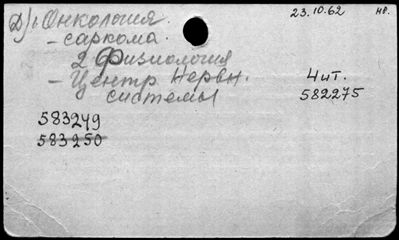 Д) 1 Онкология. 23.10.62 нр.
- саркома.
2 Физиология
- Центр. нервн. Чит.
системы 582275
583249
583250